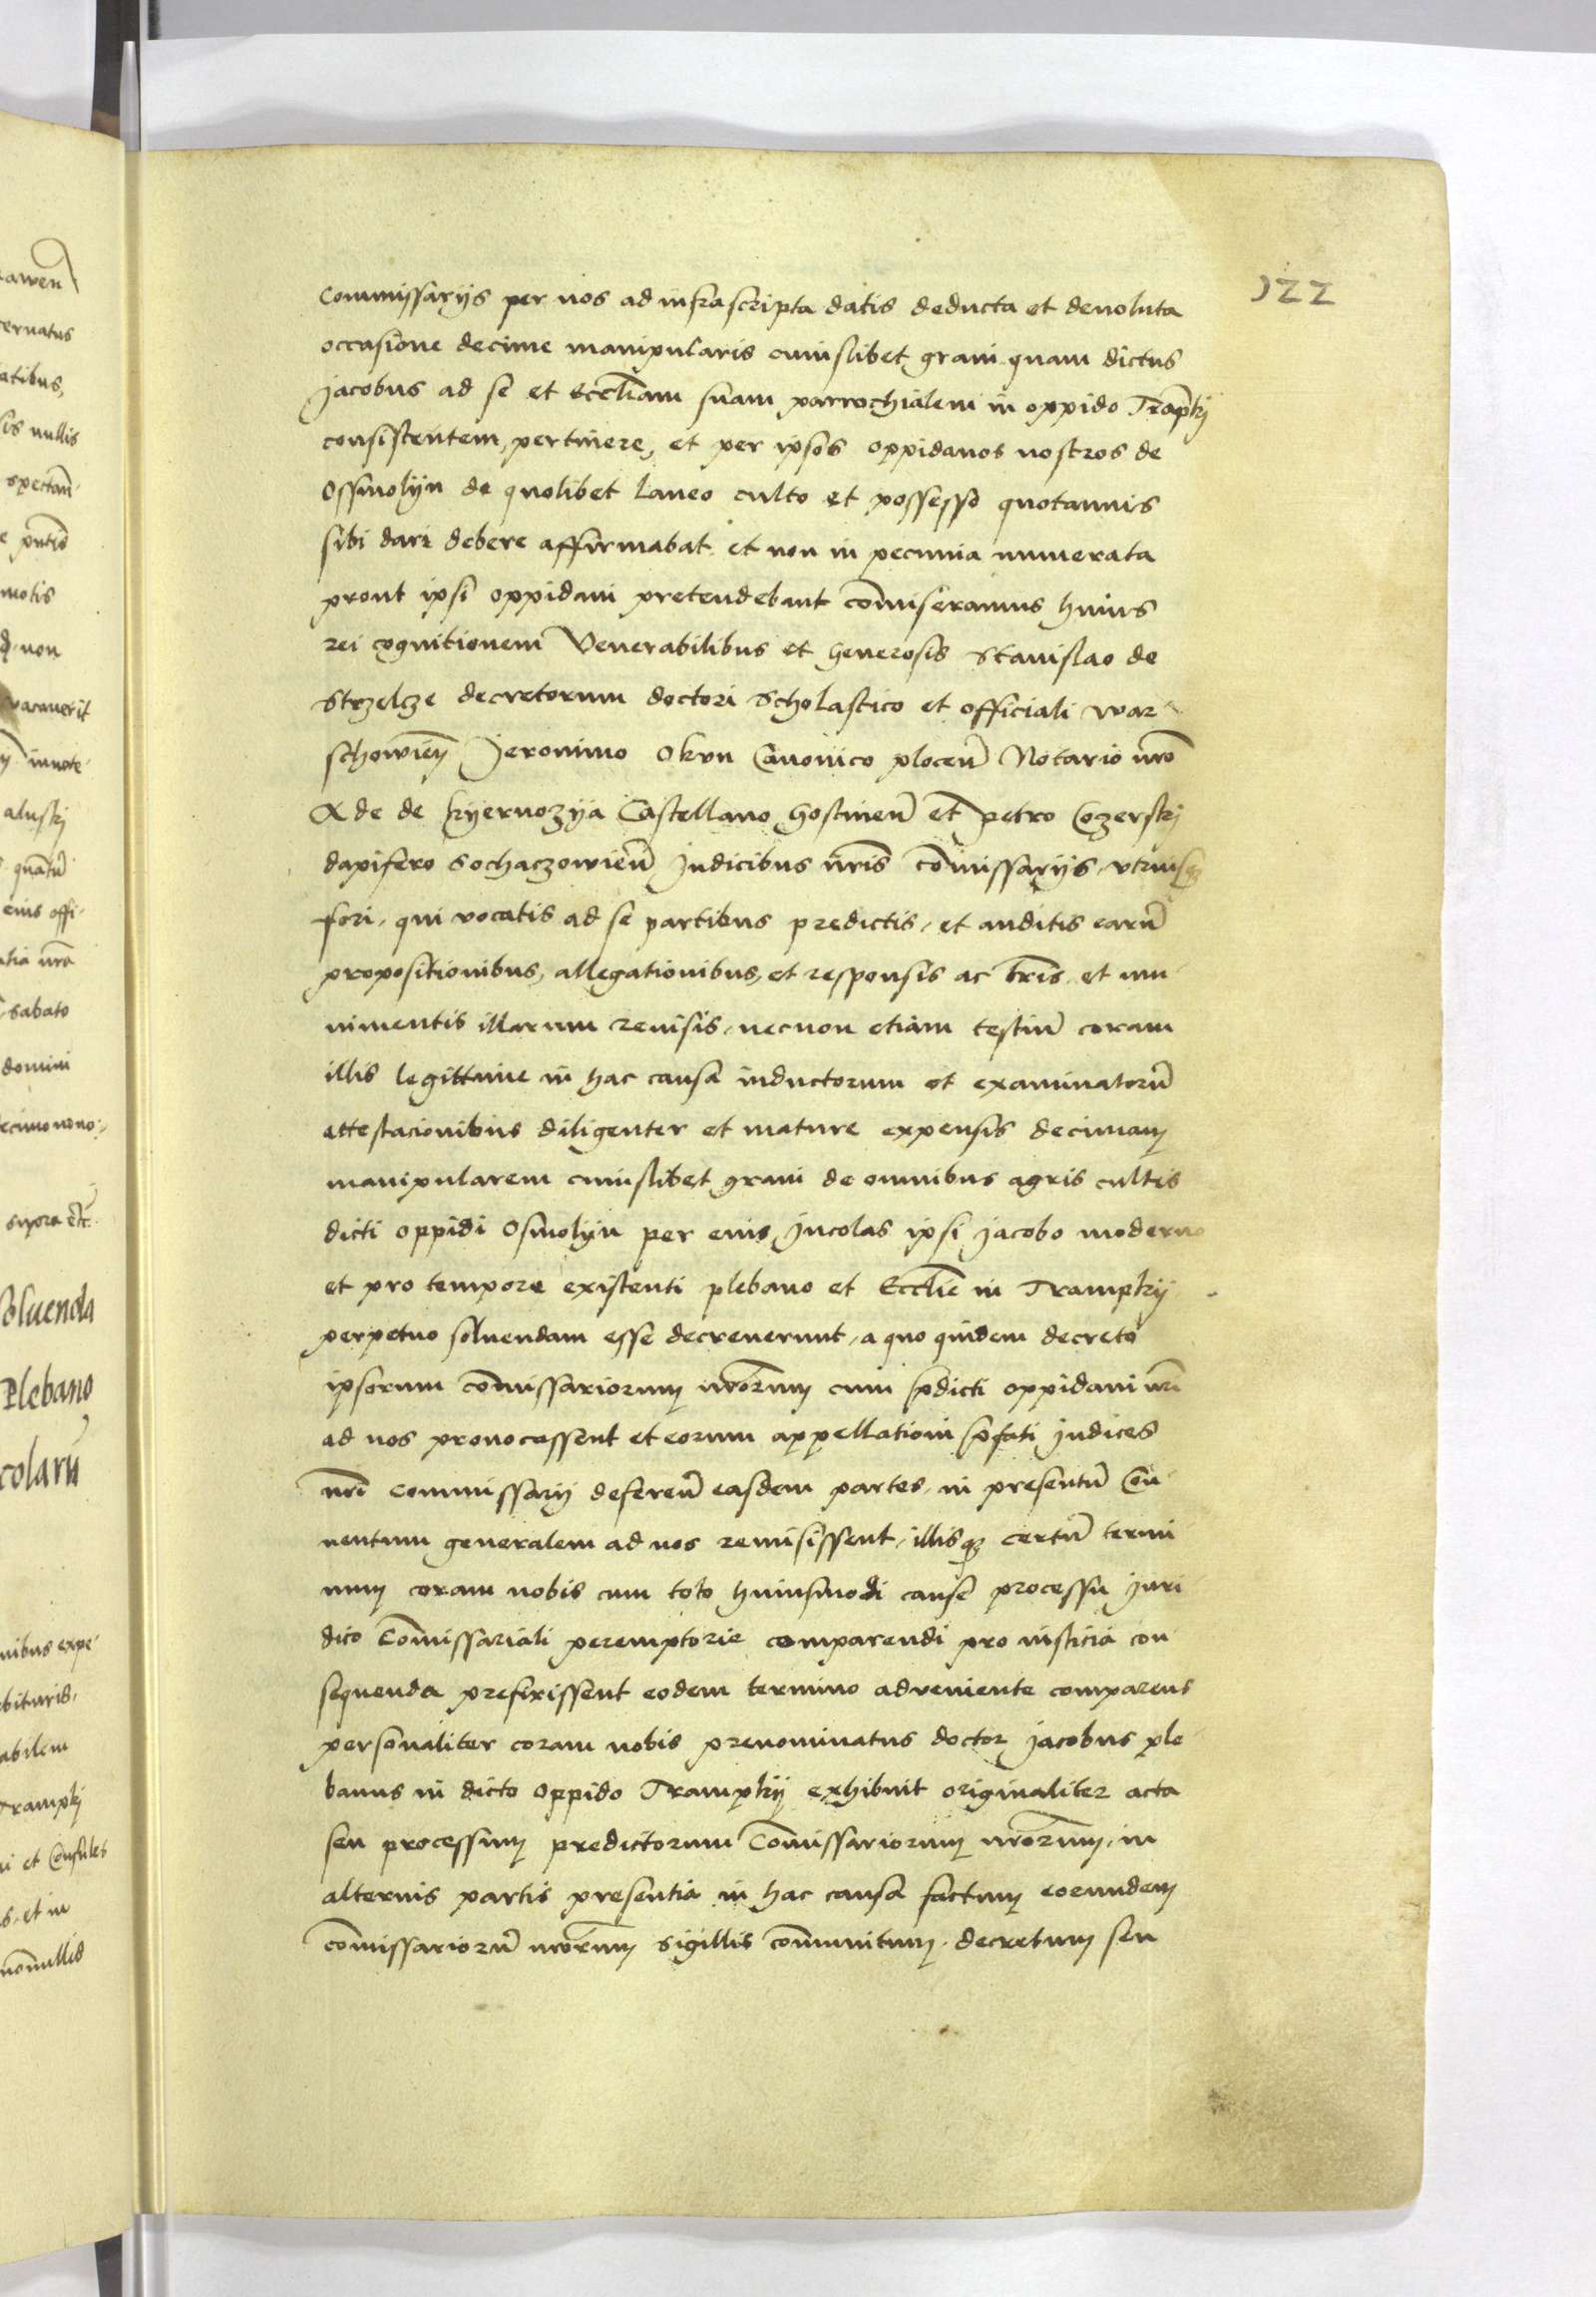 122
Commissarijs per nos ad infrascripta datis deducta et devoluta
occasione decime manipularis cuiuslibet grani quam dictus
Jacobus ad se et Eccliam suam parrochialem in oppido Trapkj
consistentem, pertinere, et per ipsos oppidanos nostros de
Ossmolyn de quolibet laneo culto et possesso quotannis
sibi dari debere affirmabat et non in pecunia numerata
prout ipsi oppidani pretendebant comiseramus huius
rei cognitionem Venerabilibus et generosis Stanislao de
Strzelcze decretorum doctori Scholastico et officiali war-
schowien Jeronimo Okun Canonico plocen Notario nro
de Kyernozya Castellano gostinen et petro Cozerskj
dapifero Sochaczowien Judicibus nris comissarijs utriusq
fori, qui vocatis ad se partibus predictis, et auditis earu
propositionibus, allegationibus, et responsis ac lris et mu
nimentis illarum revisis, necnon etiam testiu coram
illis legittime in hac causa inductorum et examinatoru
attestacionibus diligenter et mature expensis decimam
manipularem cuiuslibet grani de omnibus agris cultis
dicti oppidi Osmolyn per eius Jncolas ipsi Jacobo moderno
et pro tempore existenti plebano et Ecclie in Trampkij
perpetuo solvendam esse decreverunt, a quo quidem decreto
ipsorum comissariorum nrorum cum pdicti oppidani nri
ad nos provocassent et eorum appellationi pfati Judices
nri Commissarij deferen easdem partes, in presentu Con
ventum generalem ad nos remisissent, illisq certu termi
num coram nobis cum toto huiusmodi cause processu juri
dico Comissariali peremptorie comparendi pro iusticia con
sequenda prefixissent eodem termino adveniente comparens
personaliter coram nobis prenominatus doctor Jacobus ple
banus in dicto oppido Trampkij exhibuit originaliter acta
seu processum predictorum Comissariorum nrorum, in
alterius partis presentia in hac causa factum eorundem
comissarioru nrorum sigillis communitum, decretum seu